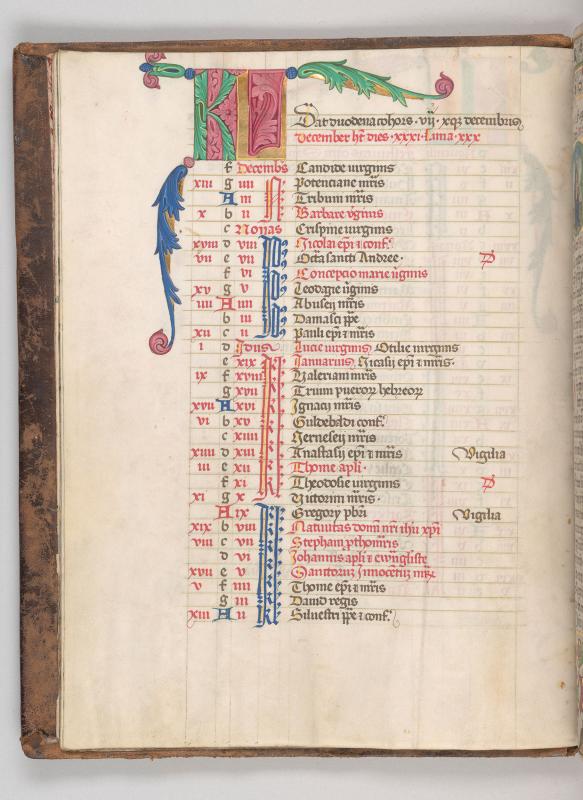 KL
Dat duodena cohors · vij · xqz decembris
December ht dies · xxxi · Luna · xxx
f Decembs Candide virginis
xiii g iiii N Potenciane mris
A iii Tribuni mris
x b ii Barbare vginis
c Nonas Crispine virginis
xviii d viii Id9 Nicolai epi et conf.
vii e vii Octa sancti Andree ·
f vi Concepcio marie vginis
xv g v Teodagie vginis
iiii A iiii Abuseii mris
b iii Damasci ppe
xii c ii Pauli epi et mris
i d Idus Lucie virginis Otilie virginis
e xix kl Januarius Nicasii epi et mris ·
ix f xviii Valeriani mris
g xvii Trium pueroꝝ hebreoꝝ
xvii A xvi Ignacii mris
vi b xv Guldebaldi conf.
c xiiii Nerneseii mris
xiiii d xiii Anastasii epi et mris Vigilia
iii e xii Thome apli ·
f xi Theodosie virginis
xi g x Victorini mris ·
A ix Gregorii pbri Vigilia
xix b viii Nativitas domi nri ihu xpi
viii c vii Stephani pthomris
d vi Johannis apli et ewngliste
xvii e v Sanctorum Innocentum
v f iiii Thome epi et mris
g iii David regis
xiii A ii Silvestri ppe et conf.